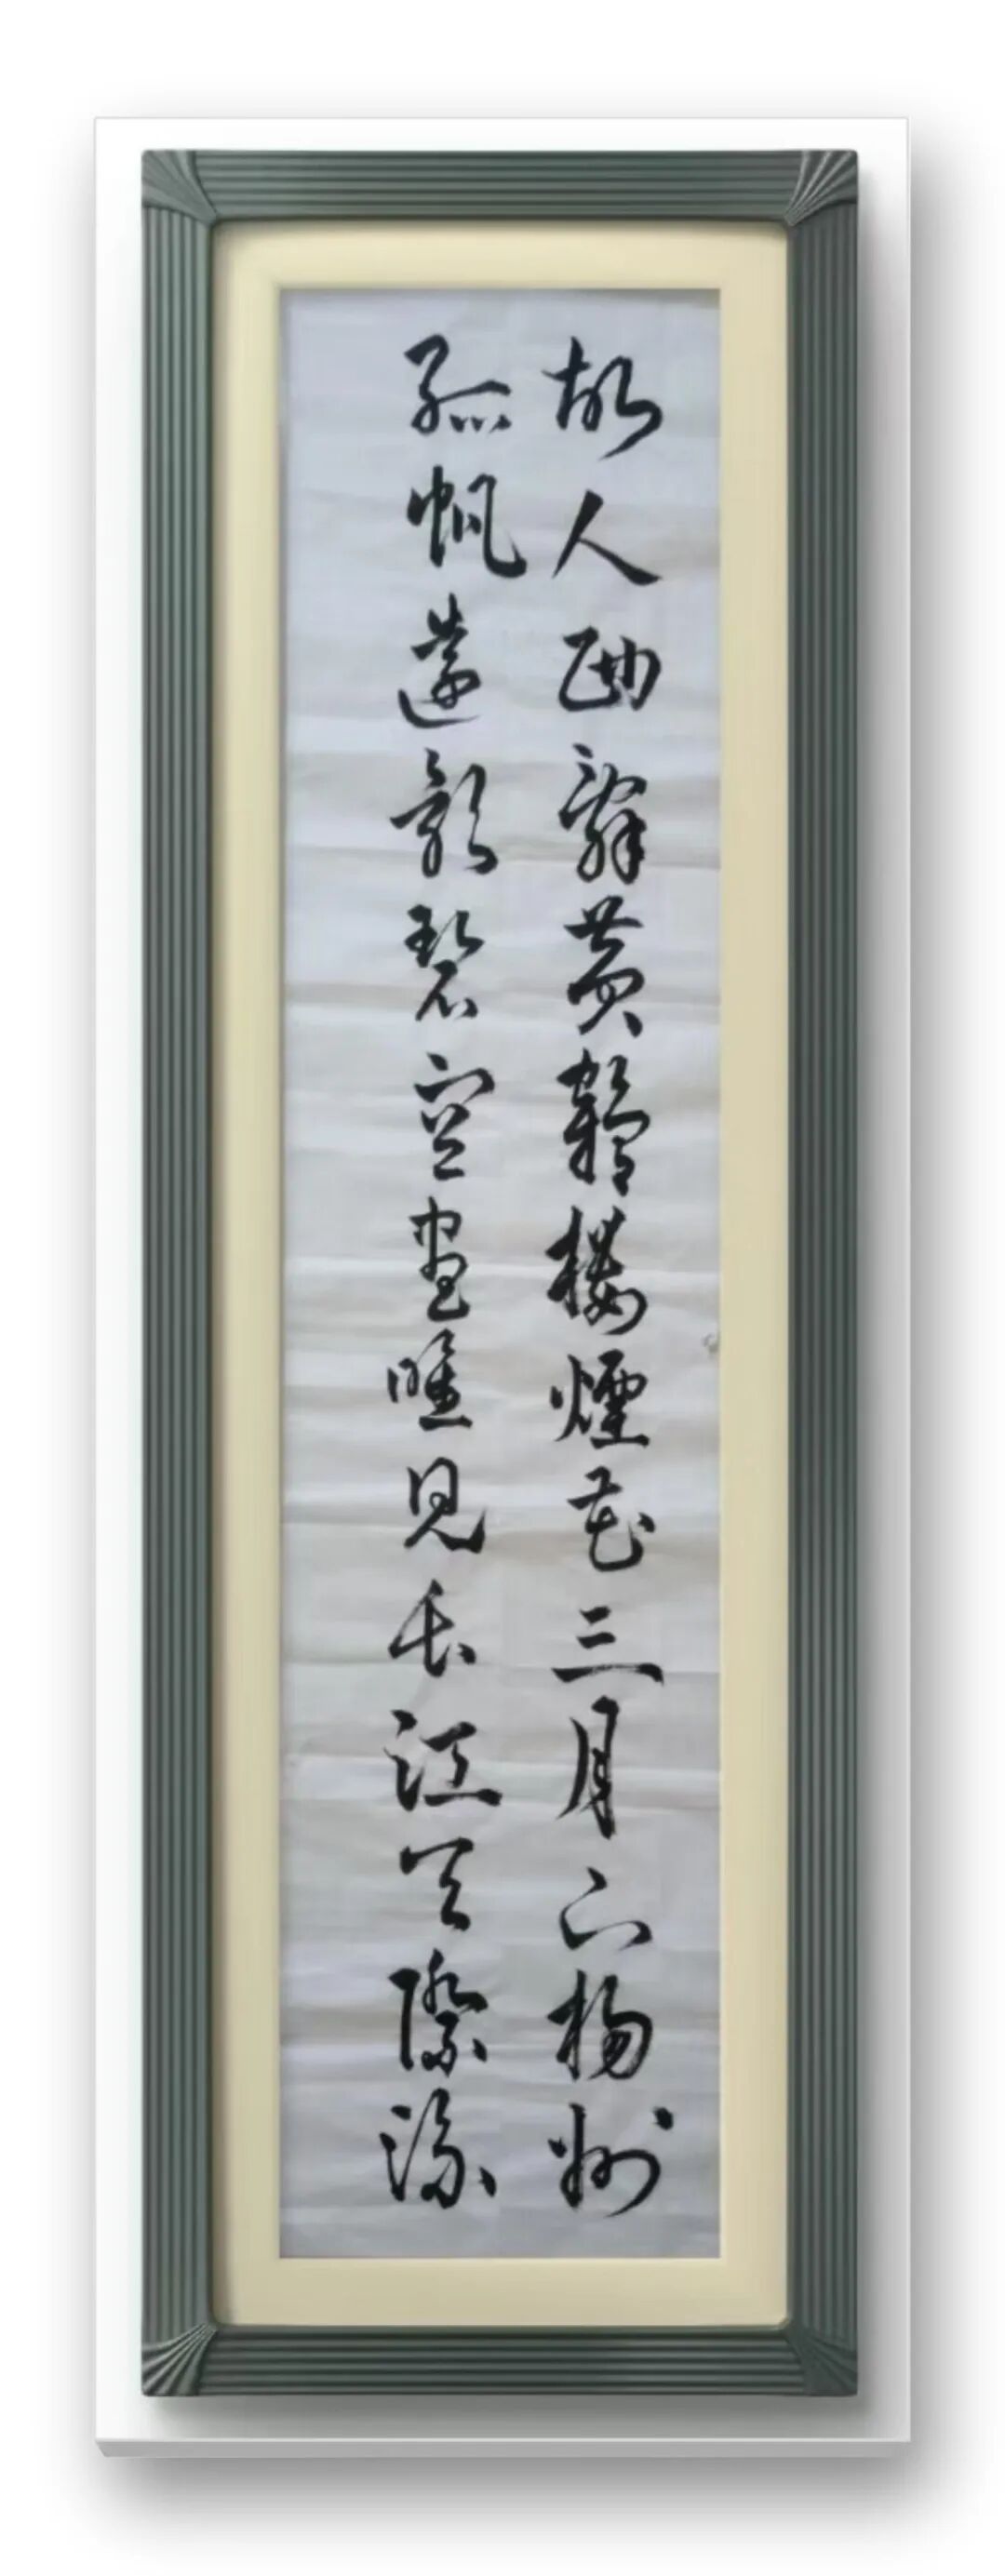 故人西辞黄鶴樓煙花三月下揚州
孤帆遠影碧空盡唯見長江天際流